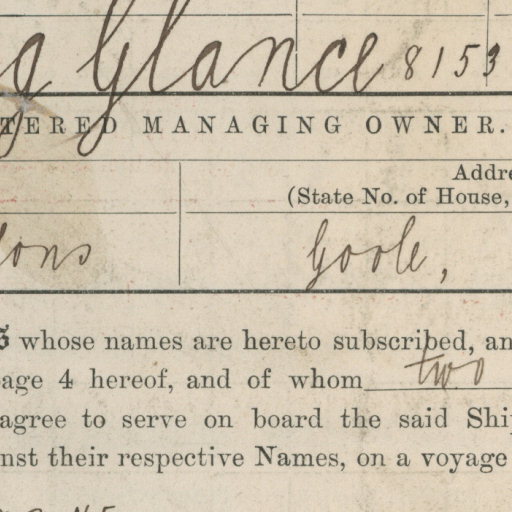 g Glance 8153
TERED MANAGING OWNER.
Addre
(State No. of House,
Sons Goole,
whose names are hereto subscribed, an
age 4 hereof, and of whom two
agree to serve on board the said Ship
nst their respective Names, on a voyage